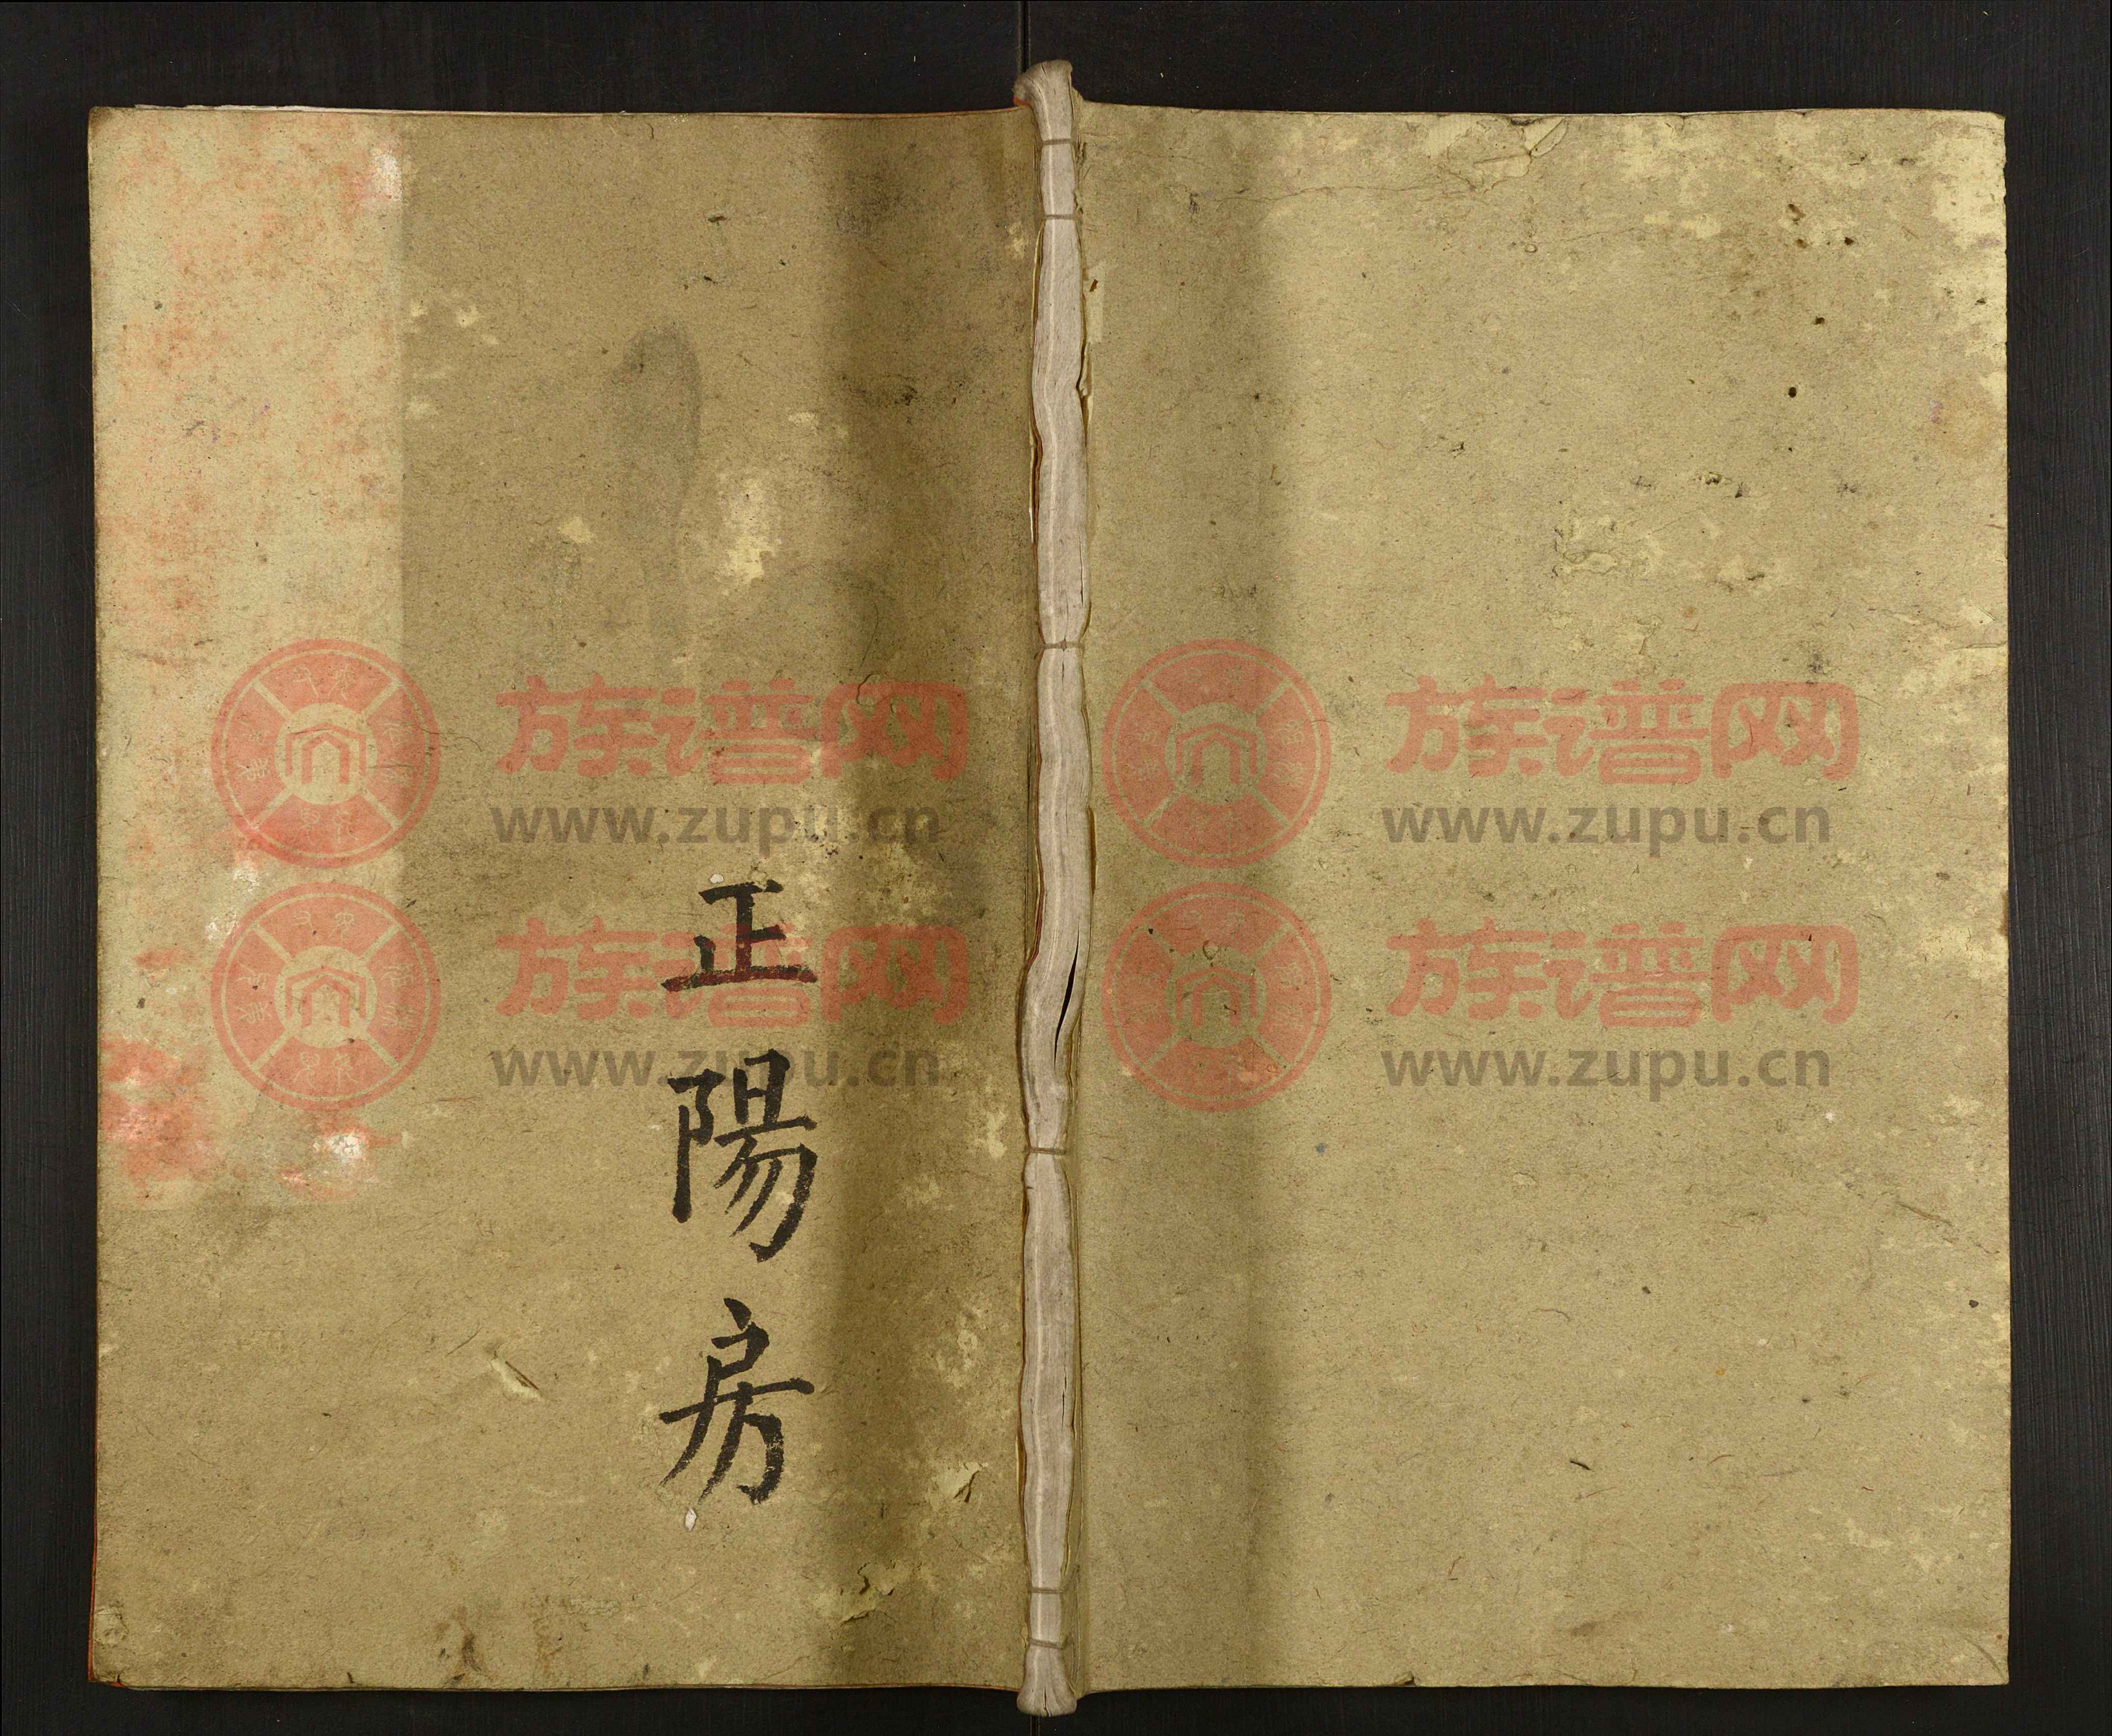 正陽房
族谱网
www.zupu.cn
族谱网
www.zupu.cn
族谱网
www.zupu.cn
族谱网
www.zupu.cn